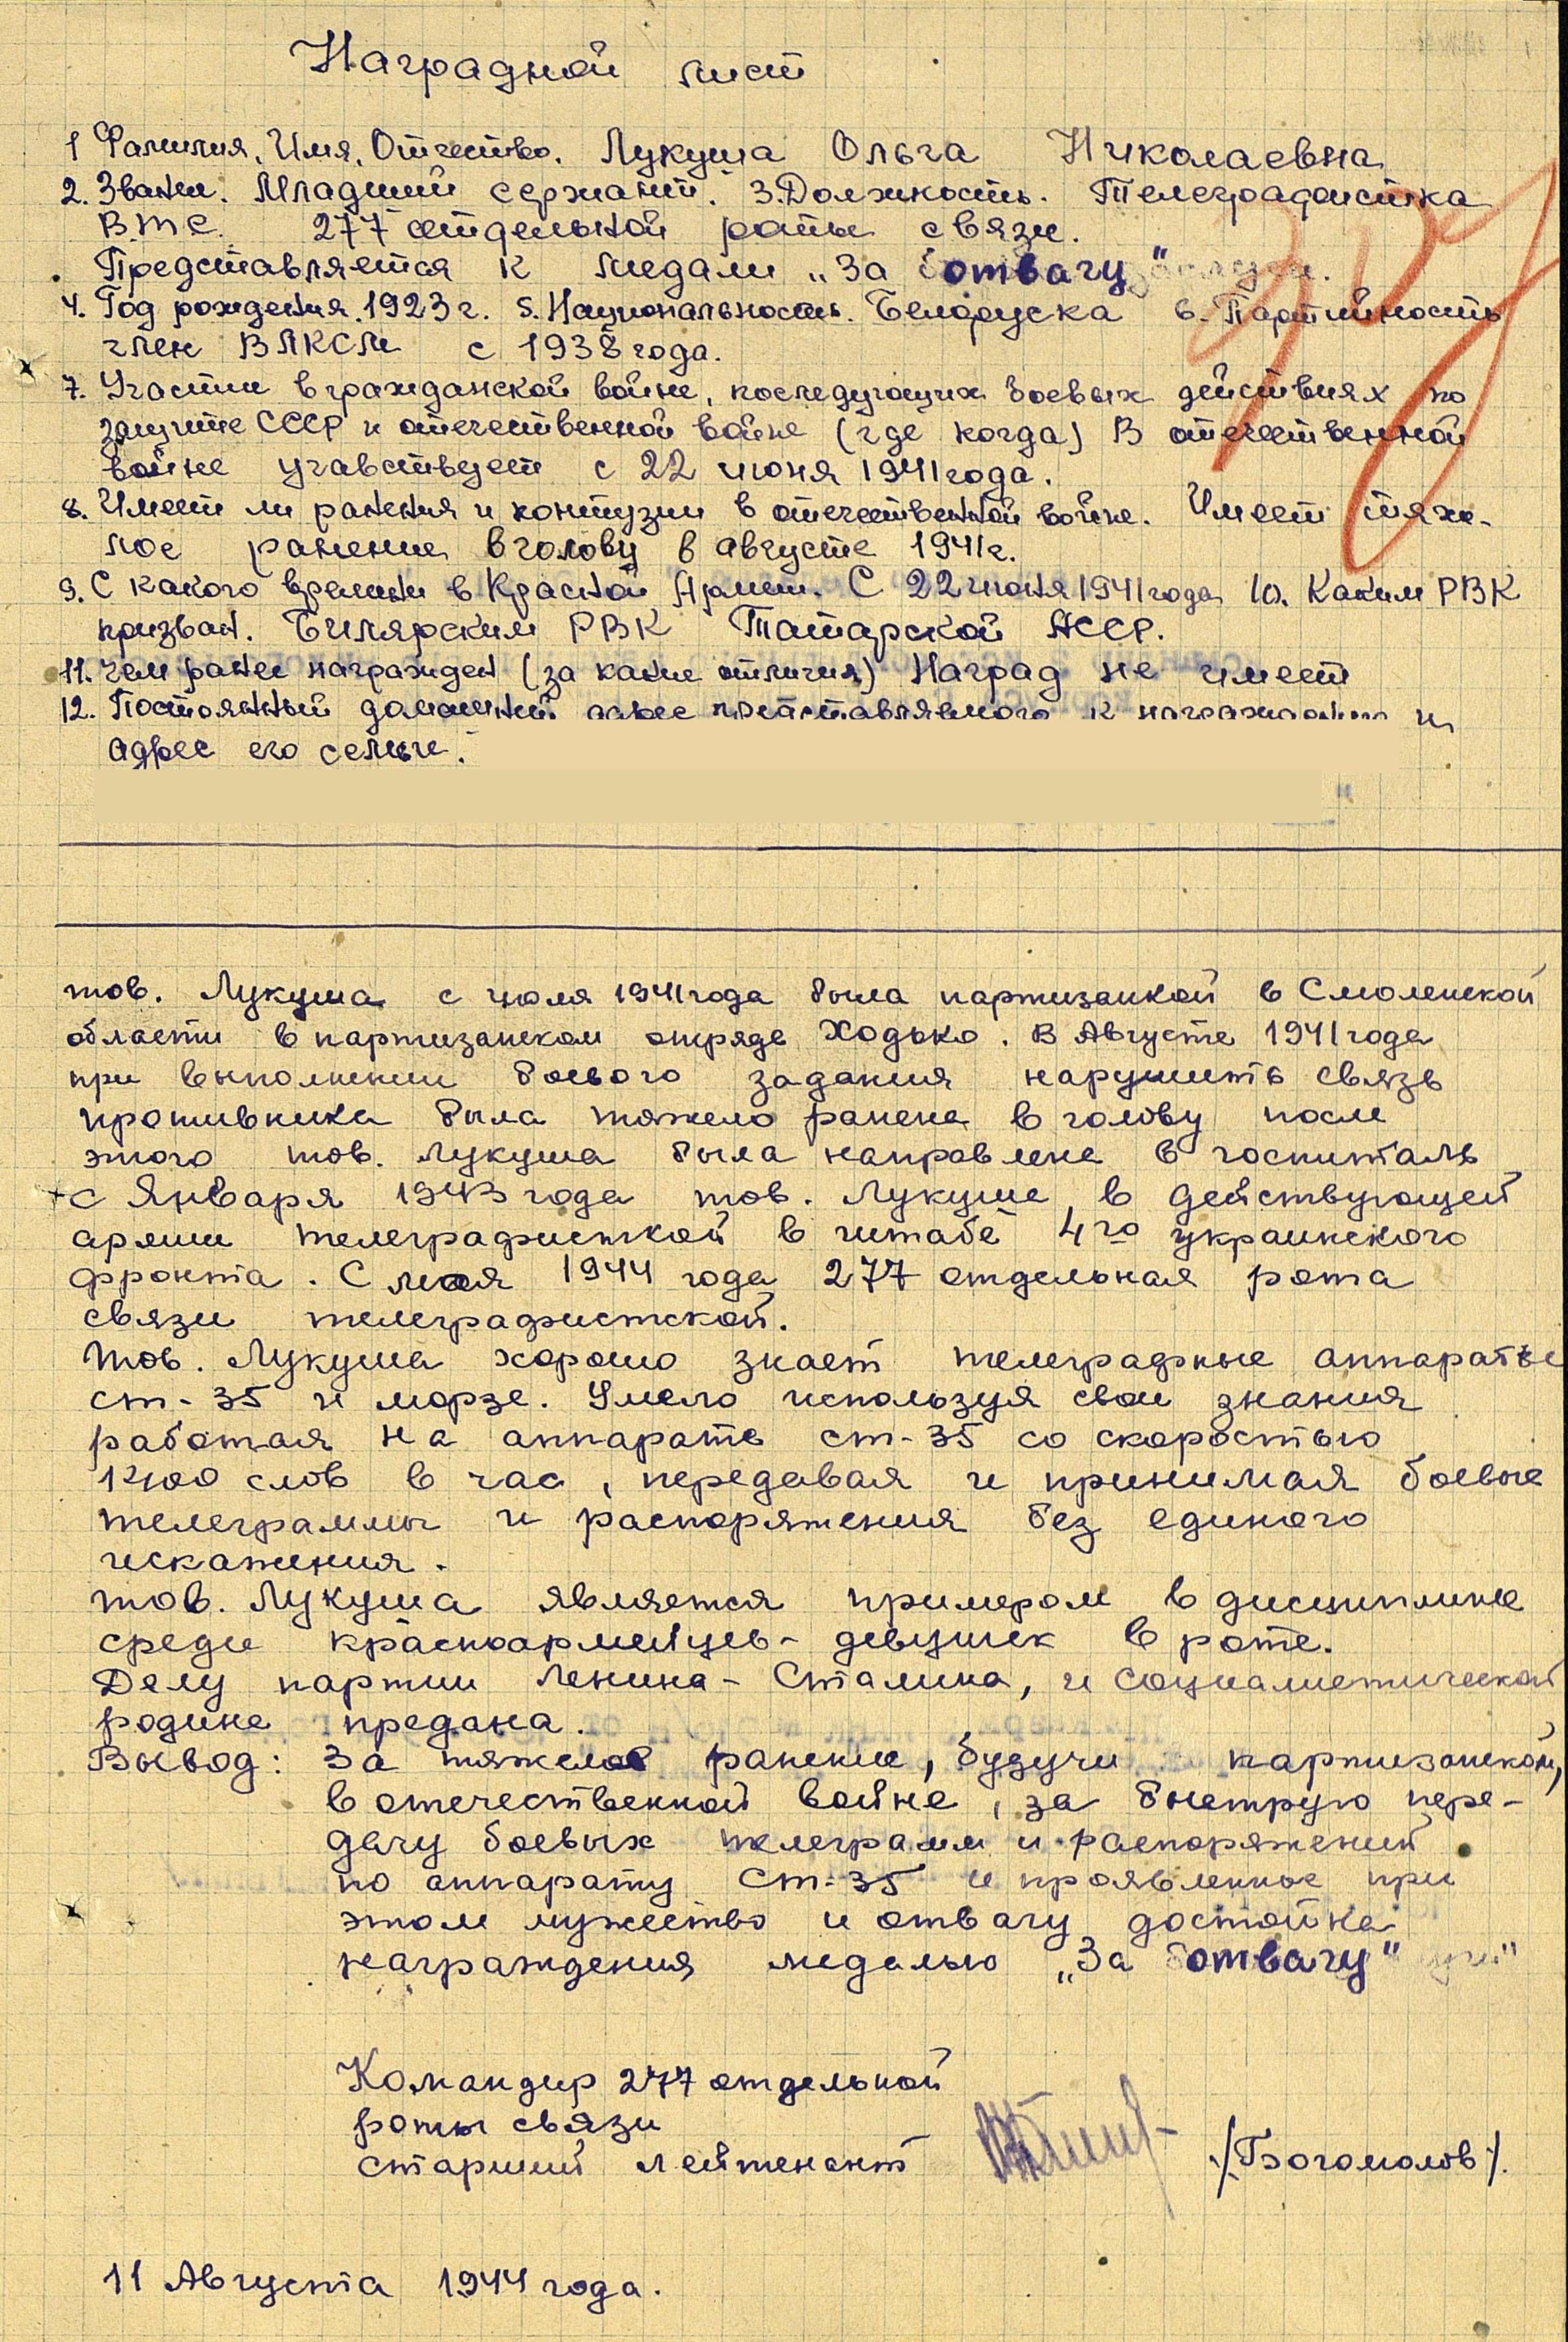 Наградной лист
1 Фамилия, Имя, Отчество. Лукуша Ольга Николаевна
2. Звание. Младший сержант. 3. Должность. Телеграфистка
В.Т.С. 277 отдельной роты связи.
Представляется к медали „За отвагу"
4. Год рождения. 1923 г. 5. Национальность. Белоруска 6. Партийность
член ВЛКСМ с 1938 года.
7. Участие в гражданской войне, последующих боевых действиях по
защите СССР и отечественной войне (где когда) В отечественной
войне учавствует с 22 июня 1941 года.
8. Имеет ли ранения и контузии в отечественной войне. Имеет тяже-
лое ранение в голову в августе 1941 г.
9. С какого времени в Красной Армии. С 22 июня 1941 года 10. Каким РВК
призван. Билярским РВК Татарской АССР.
11. Чем ранее награжден (за какие отличия) Наград не имеет
12. Постоянный домашний адрес представляемого к награждению и
адрес его семьи.
тов. Лукуша с июля 1941 года была партизанкой в Смоленской
области в партизанском отряде Ходько. В Августе 1941 года
при выполнении боевого задания нарушить связь
противника была тяжело ранена в голову после
этого тов. Лукуша была направлена в госпиталь
с Января 1943 года тов. Лукуше в действующей
армии телеграфисткой в штабе 4го украинского
фронта. С мая 1944 года 277 отдельная рота
связи телеграфистской.
Тов. Лукуша хорошо знает телеграфные аппараты
ст-35 и морзе. Умело используя свои знания
работая на аппарате ст-35 со скоростью
1400 слов в час, передавая и принимая боевые
телеграммы и распоряжения без единого
искажения.
тов. Лукуша является примером в дисциплине
среди красноармейцев-девушек в роте.
Делу партии Ленина-Сталина, и социалистической
родине предана.
Вывод: За тяжелое ранение, будучи партизанкой,
в отечественной войне, за быструю пере-
дачу боевых телеграмм и распоряжений
по аппарату Ст-35 и проявленное при
этом мужество и отвагу достойна
награждения медалью „За отвагу"
Командир 277 отдельной
роты связи
старший лейтенант /Богомолов/.
11 Августа 1944 года.